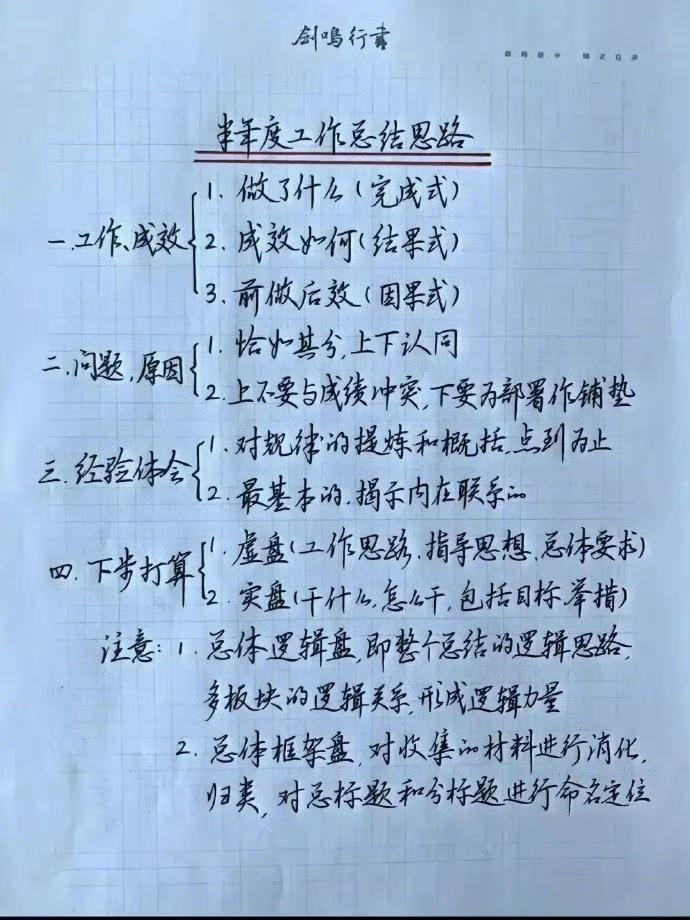 剑鸣行书
半年度工作总结思路
1. 做了什么(完成式)
一.工作、成效 2. 成效如何(结果式)
3. 前做后效(因果式)
二.问题,原因 1. 恰如其分,上下认同
2. 上不要与成绩冲突,下要为部署作铺垫
三.经验体会 1. 对规律的提炼和概括,点到为止
2. 最基本的.揭示内在联系的
四.下步打算 1. 虚盘(工作思路、指导思想、总体要求)
2. 实盘(干什么,怎么干,包括目标、举措)
注意:1. 总体逻辑盘,即整个总结的逻辑思路,
多板块的逻辑关系,形成逻辑力量
2. 总体框架盘,对收集的材料进行消化,
归类,对总标题和分标题进行命名定位